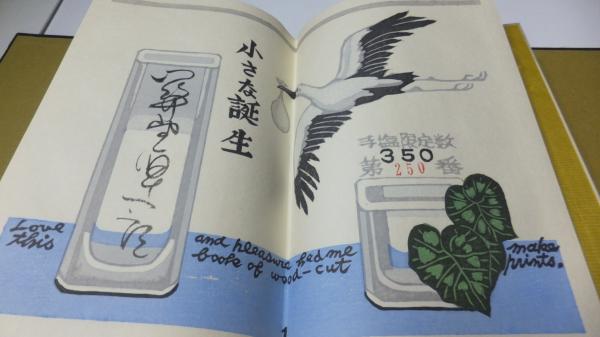 小さな誕生
手塩限定数
350
第250番
Love and pleasure had me make
this book of wood-cut prints.